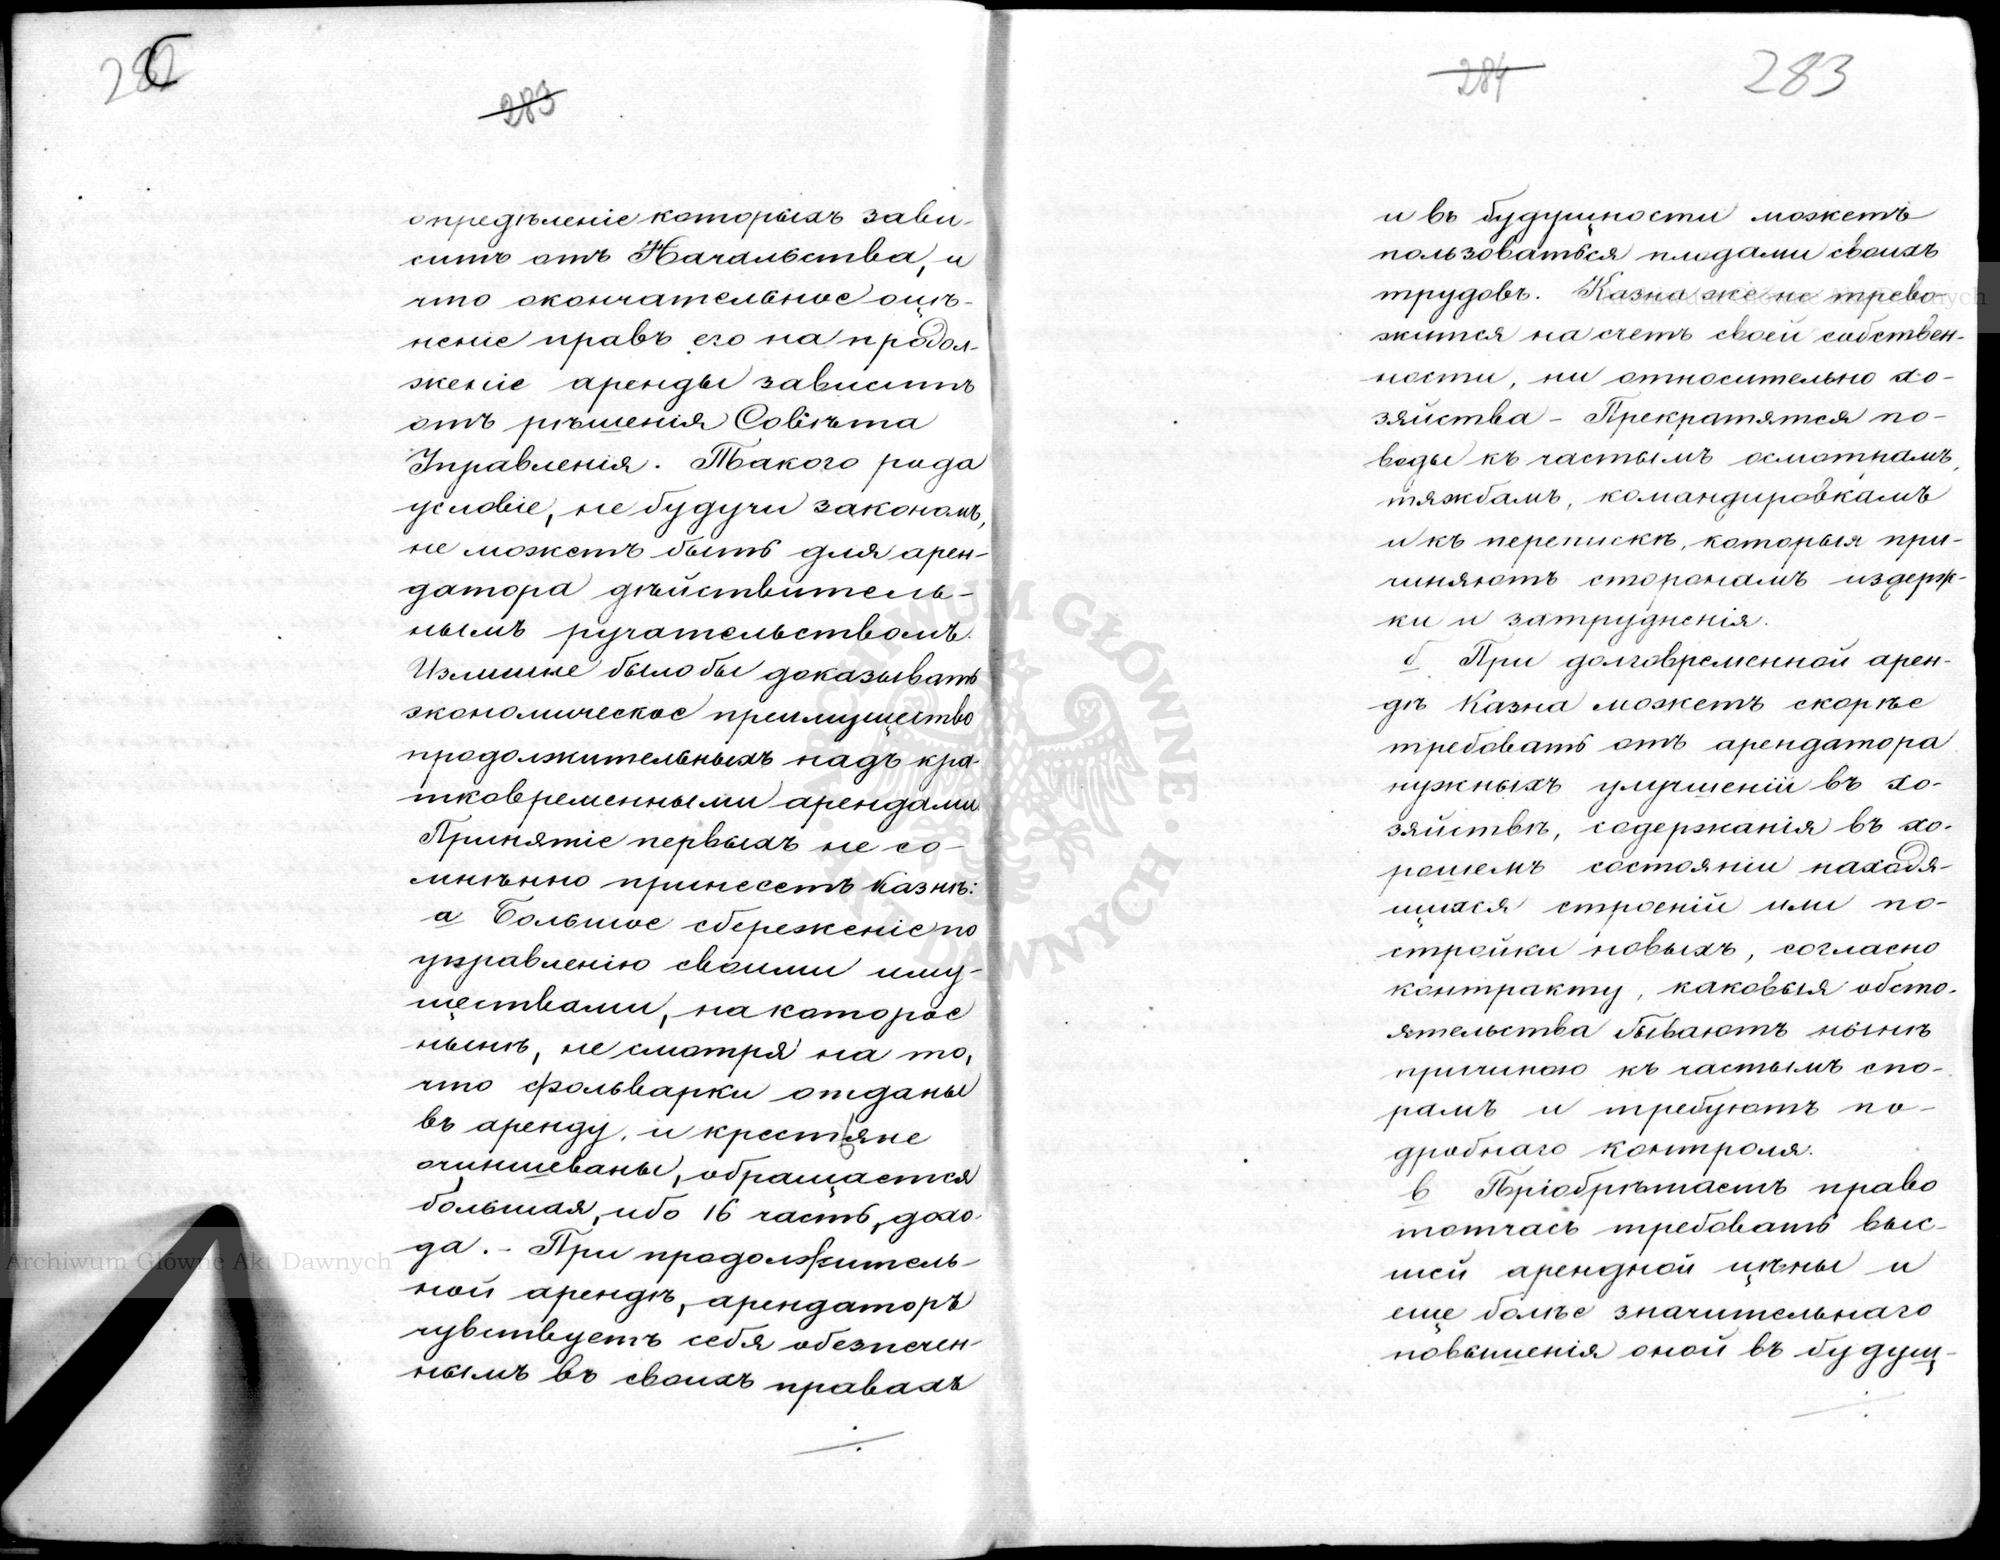 282
283
опредѣленіе которыхъ зави-
ситъ отъ Начальства, и
что окончательное оцѣ-
неніе правъ его на продол-
женіе аренды зависитъ
отъ рѣшенія Совѣта
Управленія. Такого рода
условіе, не будучи закономъ,
не можетъ быть для арен-
датора дѣйствитель-
нымъ ручательствомъ.
Излишне было бы доказывать
экономическое преимущество
продолжительныхъ надъ кра-
тковременными арендами
Принятіе первыхъ не со-
мнѣнно принесетъ Казнѣ:
а Большое сбереженіе по
управленію своими иму-
ществами, на которое
нынѣ, не смотря на то,
что фольварки отданы
въ аренду, и крестьяне
очиншеваны, обращается
большая, ибо 16 часть, дохо-
да. - При продолжитель-
ной арендѣ, арендаторъ
чувствуетъ себя обезпечен-
нымъ въ своихъ правахъ
284
283
и въ будущности можетъ
пользоваться плодами своихъ
трудовъ. Казна же не трево-
жится на счетъ своей собствен-
ности, ни относительно хо-
зяйства - Прекратятся по-
воды къ частымъ осмотрамъ,
тяжбамъ, командировкамъ
и къ перепискѣ, которыя при-
чиняютъ сторонамъ издерж-
ки и затрудненія.
б При долговременной арен-
дѣ Казна можетъ скорѣе
требовать отъ арендатора
нужныхъ улучшеній въ хо-
зяйствѣ, содержанія въ хо-
рошемъ состояніи находя-
щихся строеній или по-
стройки новыхъ, согласно
контракту, каковыя обсто-
ятельства бываютъ нынѣ
причиною къ частымъ спо-
рамъ и требуютъ по-
дробнаго контроля.
в Пріобрѣтаетъ право
тотчасъ требовать выс-
шей арендной цѣны и
еще болѣе значительнаго
повышенія оной въ будущ-
Archiwum Główne Akt Dawnych
ARCHIWUM GŁÓWNE AKT DAWNYCH